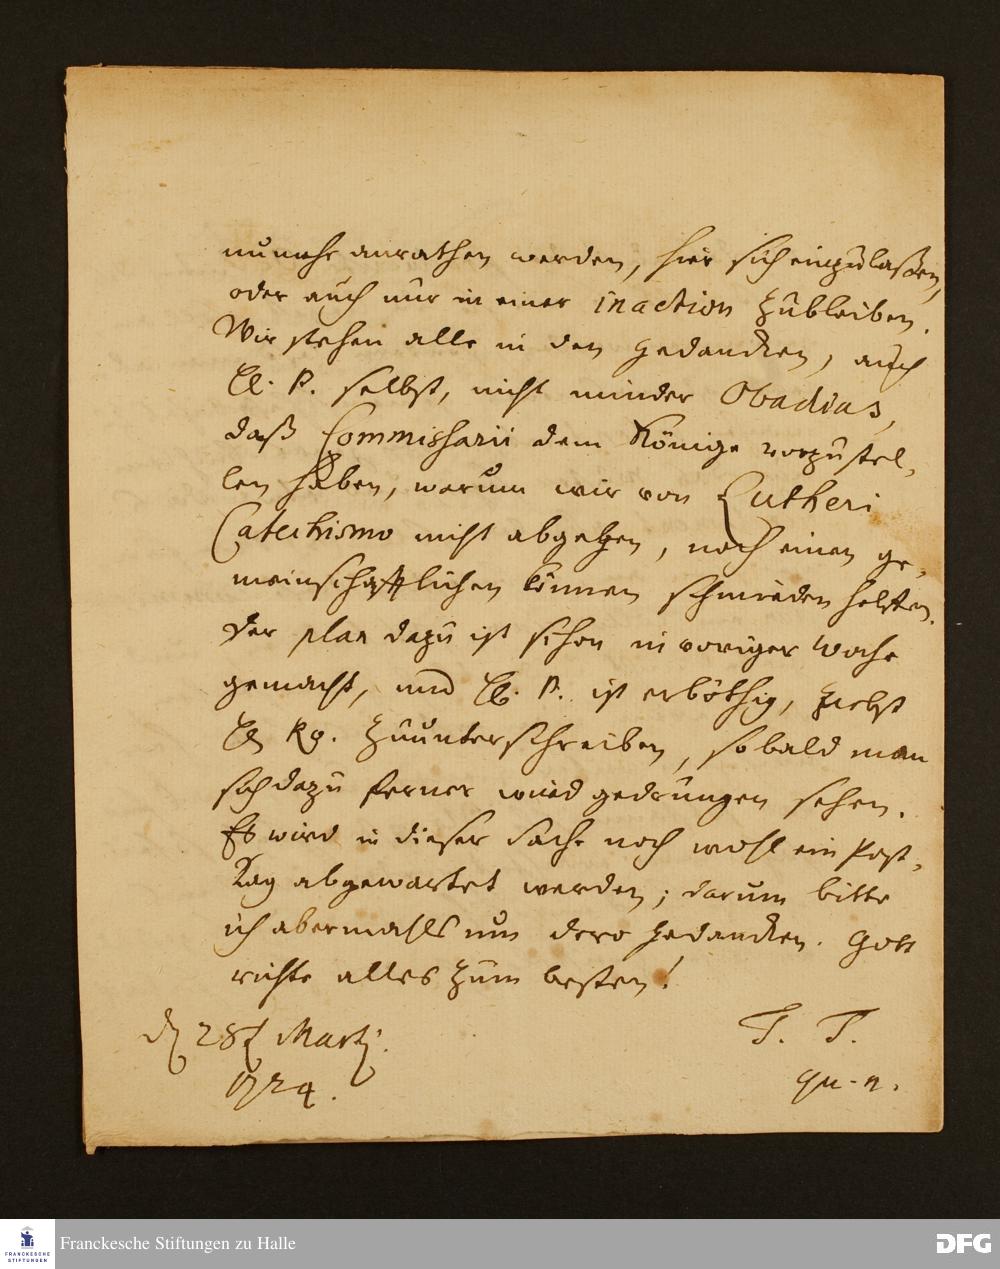 nunmehr anrathen werden, hier sich einzulaßen,
oder auch nur in einer inaction zubleiben.
Wir stehen alle in den gedancken, auch
P. selbst, nicht minder Obadias,
daß Commissarii dem Könige vorzustel-
len haben, warum wir von Lutheri
Catechismo nicht abgehen, noch einen ge-
meinschafftlichen können schmieden helffen.
Der plan dazu ist schon in voriger Woche
gemacht, und P. ist erböthig, selbst
zuunterschreiben, sobald man
sich dazu ferner wird gedrungen sehen.
Es wird in dieser Sache noch wohl ein Post-
Tag abgewartet werden; darum bitte
ich abermahls um dero gedancken. Gott
richte alles zum besten!
d 28t Martj. T. T.
1724. qu-n.
Franckesche Stiftungen zu Halle
FRANCKESCHE
STIFTUNGEN
DFG